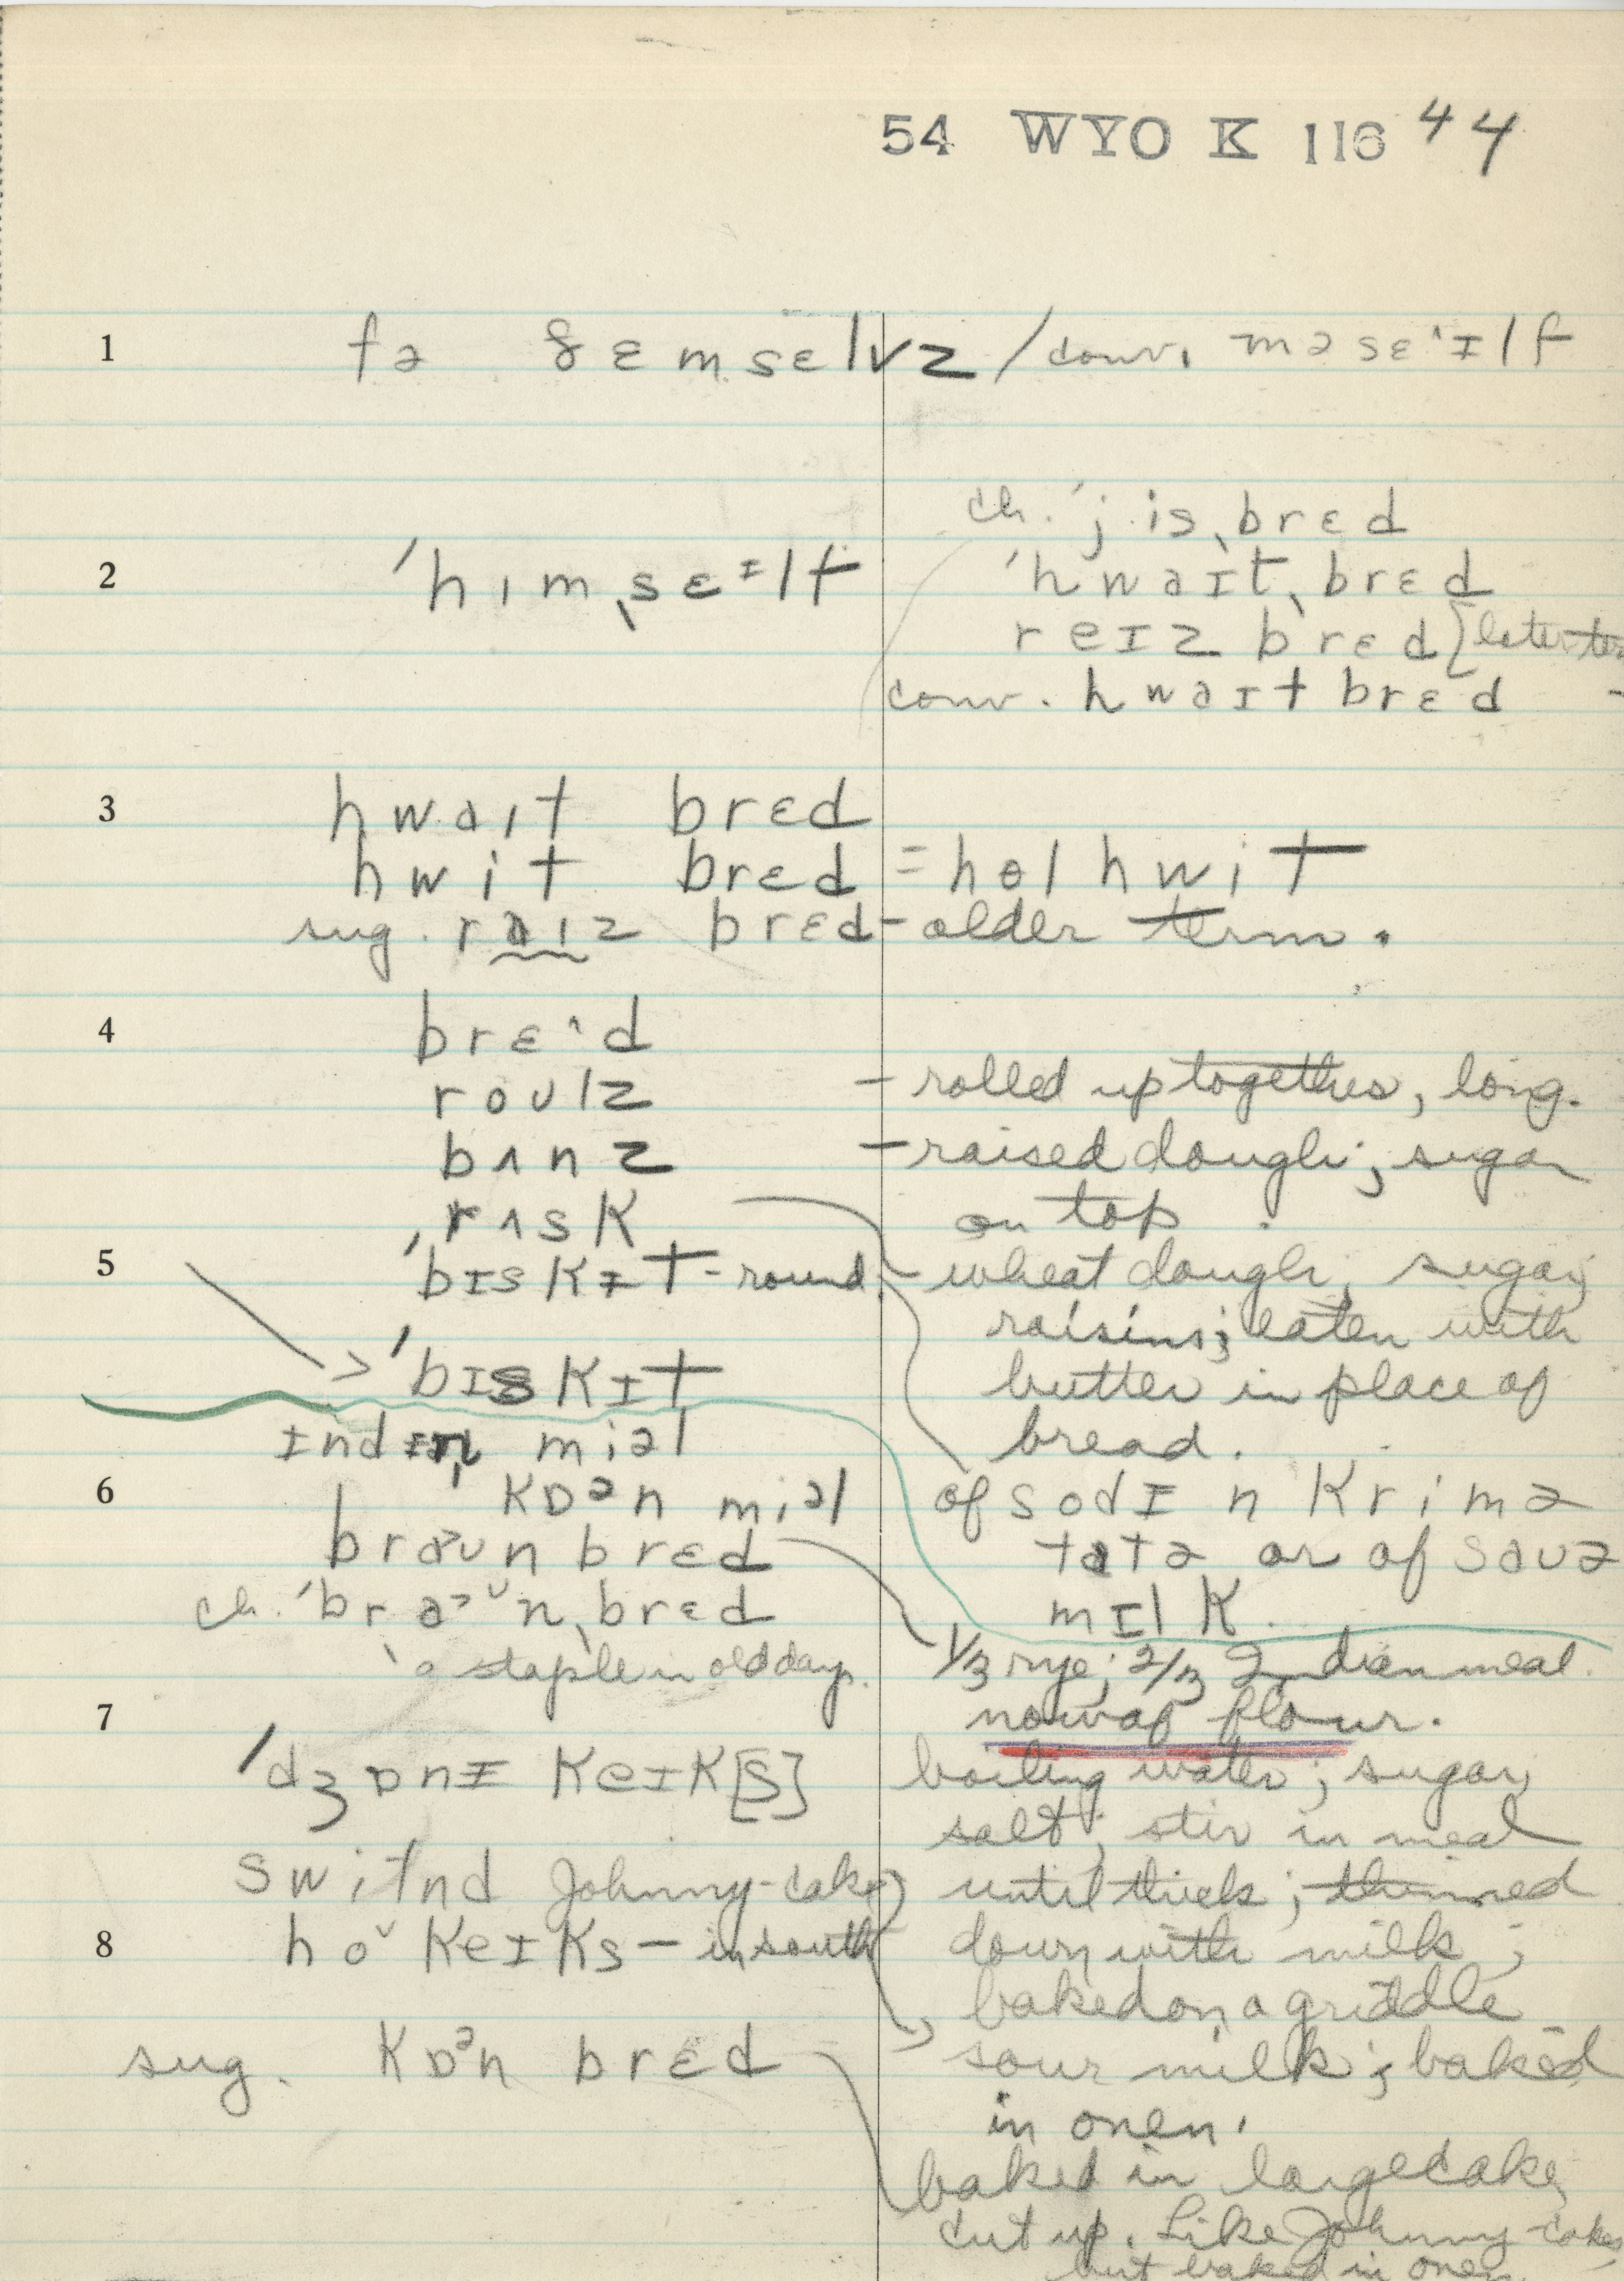 54 WYO K 116 44
1 fə ðɛmsɛlvz / conv. məsɛˑɪlf
ch. ˈjisˌbrɛd
2 ˈhɪmˌsɛᶦlf ˈhwaɪtˌbrɛd
reɪz brɛd [later
conv. hwaɪt brɛd -
3 hwaɪt brɛd
hwit brɛd = hɵl hwit
sug. reɪz brɛd - older term.
4 brɛˑd
roʊlz - rolled up together, long.
bʌnz - raised dough; sugar
ˌrʌsk on top.
5 ˈbɪskɪt - round - wheat dough, sugar,
raisins; eaten with
> ˈbɪskɪt butter in place of
ɪndɪən miəl bread.
6 kɒᵊn miəl of sodɪ n krimə
braʊn brɛd tatə or of saʊə
ch. ˈbraᵊʊnˌbrɛd mɪlk.
a staple in old days. 1/3 rye; 2/3 Indian meal.
7 now of flour.
ˈdʒɒnɪ keɪk[s] boiling water; sugar,
salt; stir in meal
switnd Johnny-cake) until thick; thinned
8 hoˇ keɪks - in south down with milk;
baked on a griddle
sug. kɒᵊn brɛd > sour milk; baked
in onen.
baked in large cake,
cut up. Like Johnny-cakes,
but baked in onen